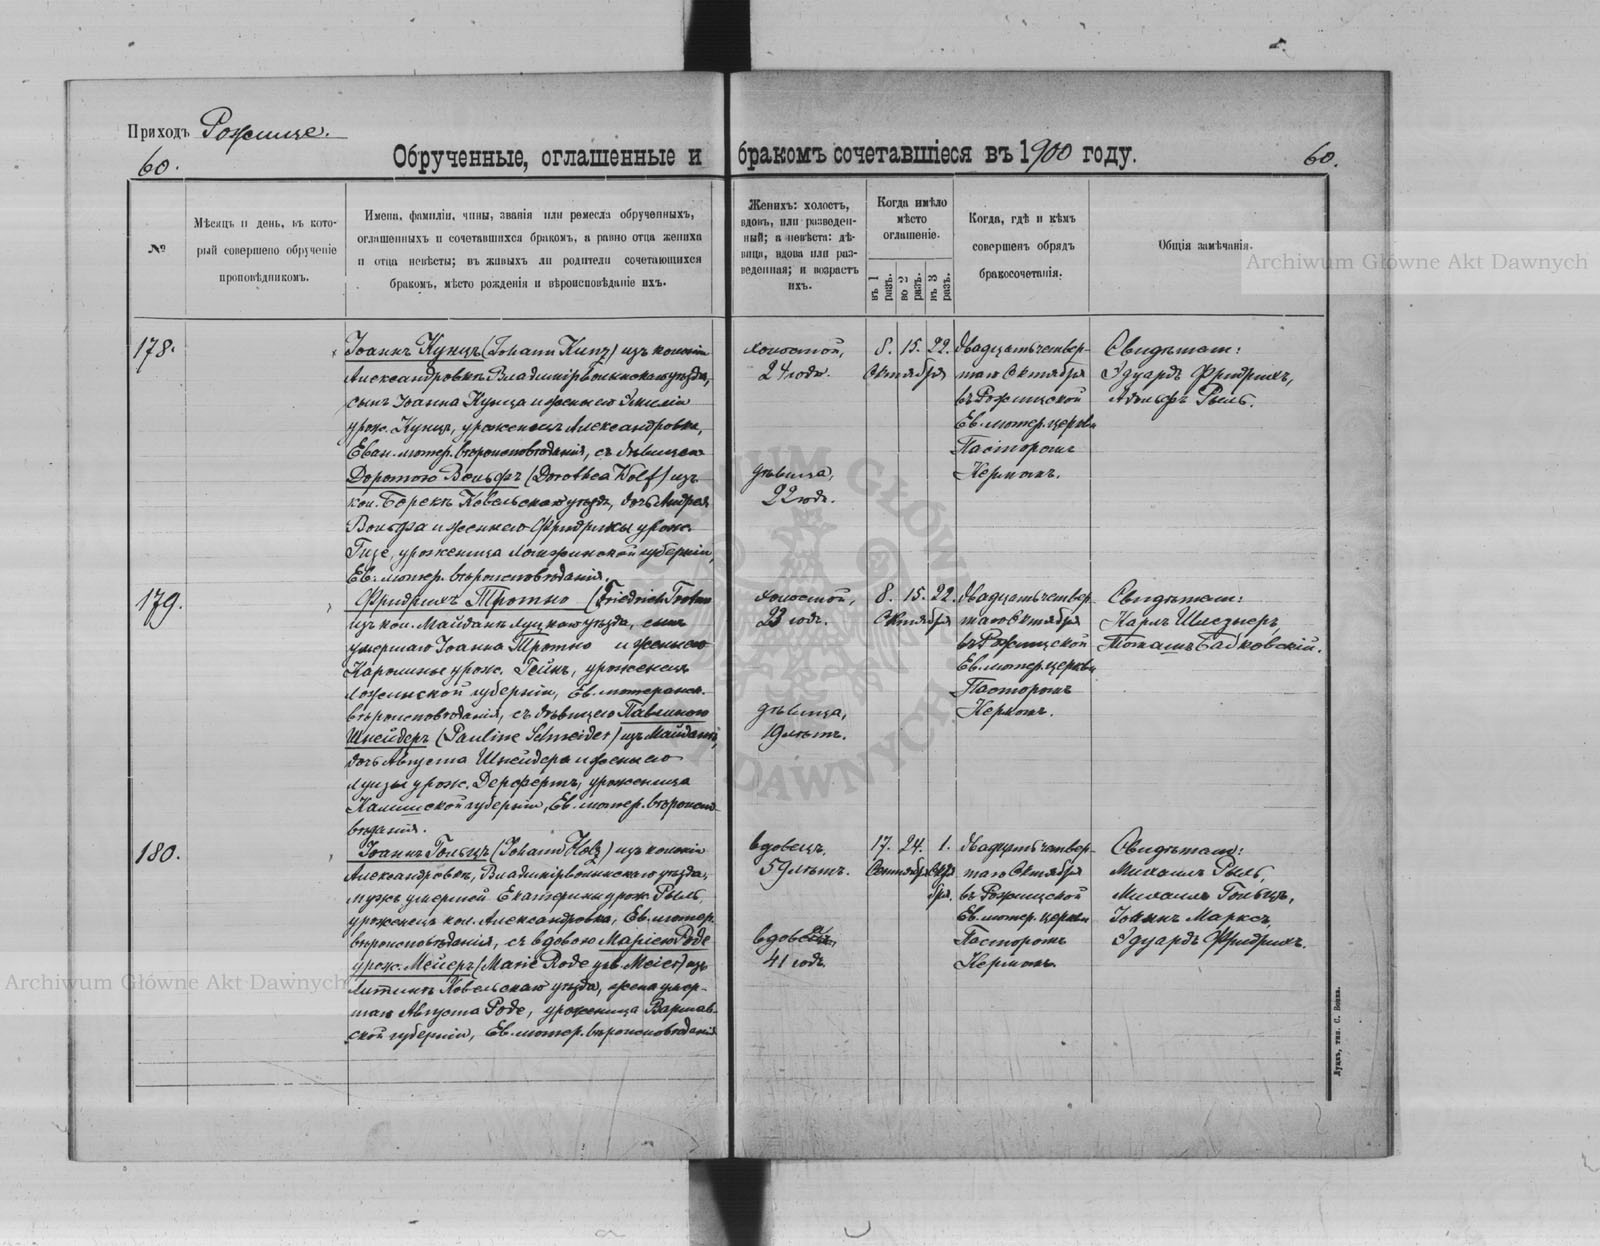 Приходъ Рожище.
60.
Обрученные, оглашенные и бракомъ сочетавшіеся въ 1900 году.
60.
№
Мѣсяцъ и день, въ кото-
рый совершено обрученіе
проповѣдникомъ.
Имена, фамиліи, чины, званія или ремесла обрученныхъ,
оглашенныхъ и сочетавшихся бракомъ, а равно отца жениха
и отца невѣсты; въ живыхъ ли родители сочетающихся
бракомъ, мѣсто рожденія и вѣроисповѣданіе ихъ.
Женихъ: холостъ,
вдовъ, или разведен-
ный; а невѣста: дѣ-
вица, вдова или раз-
веденная; и возрастъ
ихъ.
Когда имѣло
мѣсто
оглашеніе.
въ 1 разъ.
во 2 разъ.
въ 3 разъ.
Когда, гдѣ и кѣмъ
совершенъ обрядъ
бракосочетанія.
Общія замѣчанія.
Archiwum Główne Akt Dawnych
178.
Іоаннъ Кунцъ (Johann Kunz) изъ колоніи
Александровкъ Владимірволынскаго уѣзда,
сынъ Іоанна Кунца и жены его Эмиліи
урож. Кунцъ, уроженецъ Александровки,
Еван. лютер. вѣроисповѣданія, съ дѣвицею
Доротою Вольфъ (Dorothea Wolf) изъ
кол. Борекъ Ковельскаго уѣзда, дочь Андрея
Вольфа и жены его Фридрики урож.
Гизе, уроженица Ломжинской губерніи,
Ев. лютер. вѣроисповѣданія.
холостой,
24 года.
дѣвица,
22 года.
8. 15. 22.
Октября
двадцатьчетвер-
таго Октября
въ Рожищской
Ев. лютер. церкви
Пасторомъ
Кермомъ.
Свидѣтели:
Эдуардъ Фридрихъ,
Адольфъ Рыль.
179.
Фридрихъ Тротно (Friedrich Trotno
изъ кол. Майданъ Луцкаго уѣзда, сынъ
умершаго Іоанна Тротно и жены его
Каролины урож. Гейнъ, уроженецъ
губерніи, Ев. лютеранск.
вѣроисповѣданія, съ дѣвицею Павлиною
Шнейдеръ (Pauline Schneider) изъ Майданъ,
дочь Августа Шнейдера и жены его
Луизы урож. Дерфертъ, уроженица
Калишской губерніи, Ев. лютер. вѣроиспо-
вѣданія.
холостой,
23 года.
дѣвица,
19 лѣтъ.
8. 15. 22.
Октября
двадцатьчетвер-
таго Октября
въ Рожищской
Ев. лютер. церкви
Пасторомъ
Кермомъ.
Свидѣтели:
Карлъ Шлезнеръ
Томашъ Бадковскій.
180.
Іоаннъ Гольцъ (Johann Holz) изъ колоніи
Александровки, Владимірволынскаго уѣзда,
мужъ умершей Екатерины урож. Рыль,
уроженецъ кол. Александровка, Ев. лютер.
вѣроисповѣданія, съ вдовою Маріею Роде
урож. Мейеръ (Marie Rode geb. Meier) изъ
Литинъ Ковельскаго уѣзда, жена умер-
шаго Августа Роде, уроженица Варшав-
ской губерніи, Ев. лютер. вѣроисповѣданія
вдовецъ.
59 лѣтъ.
вдова,
41 годъ.
17. 24. 1.
Сентября Октя
бря.
двадцатьчетвер-
таго Октября
въ Рожищской
Ев. лютер. церкви
Пасторомъ
Кермомъ.
Свидѣтели:
Михаилъ Рыль,
Михаилъ Гольцъ,
Іоаннъ Марксъ,
Эдуардъ Фридрихъ.
Archiwum Główne Akt Dawnych
ARCHIWUM GŁÓWNE AKT DAWNYCH
Луцкъ, тип. С. Бонка.